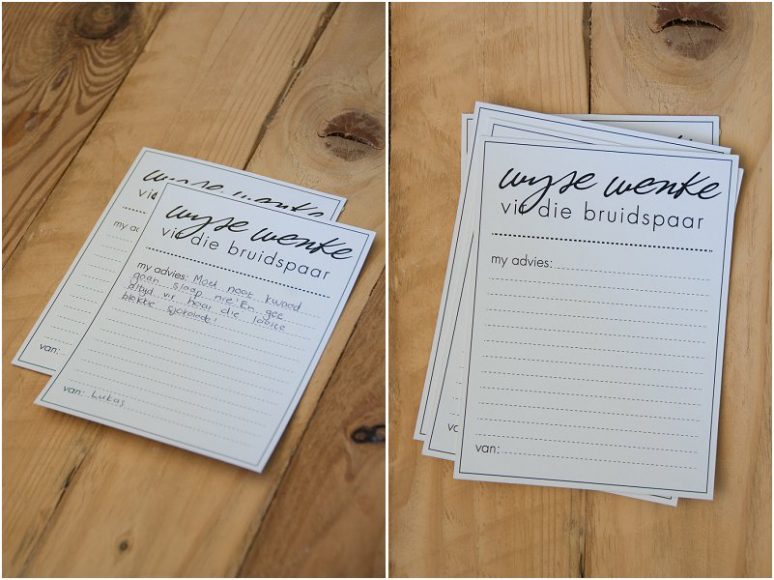 wyse wenke
my
van:
wyse wenke
vir die bruidspaar
my advies: Moet nooit kwaad
gaan slaap nie! En gee
altyd vir haar die laaste
blokkie sjokolade!
van: Lukas
wyse wenke
vir die bruidspaar
my advies:
van: